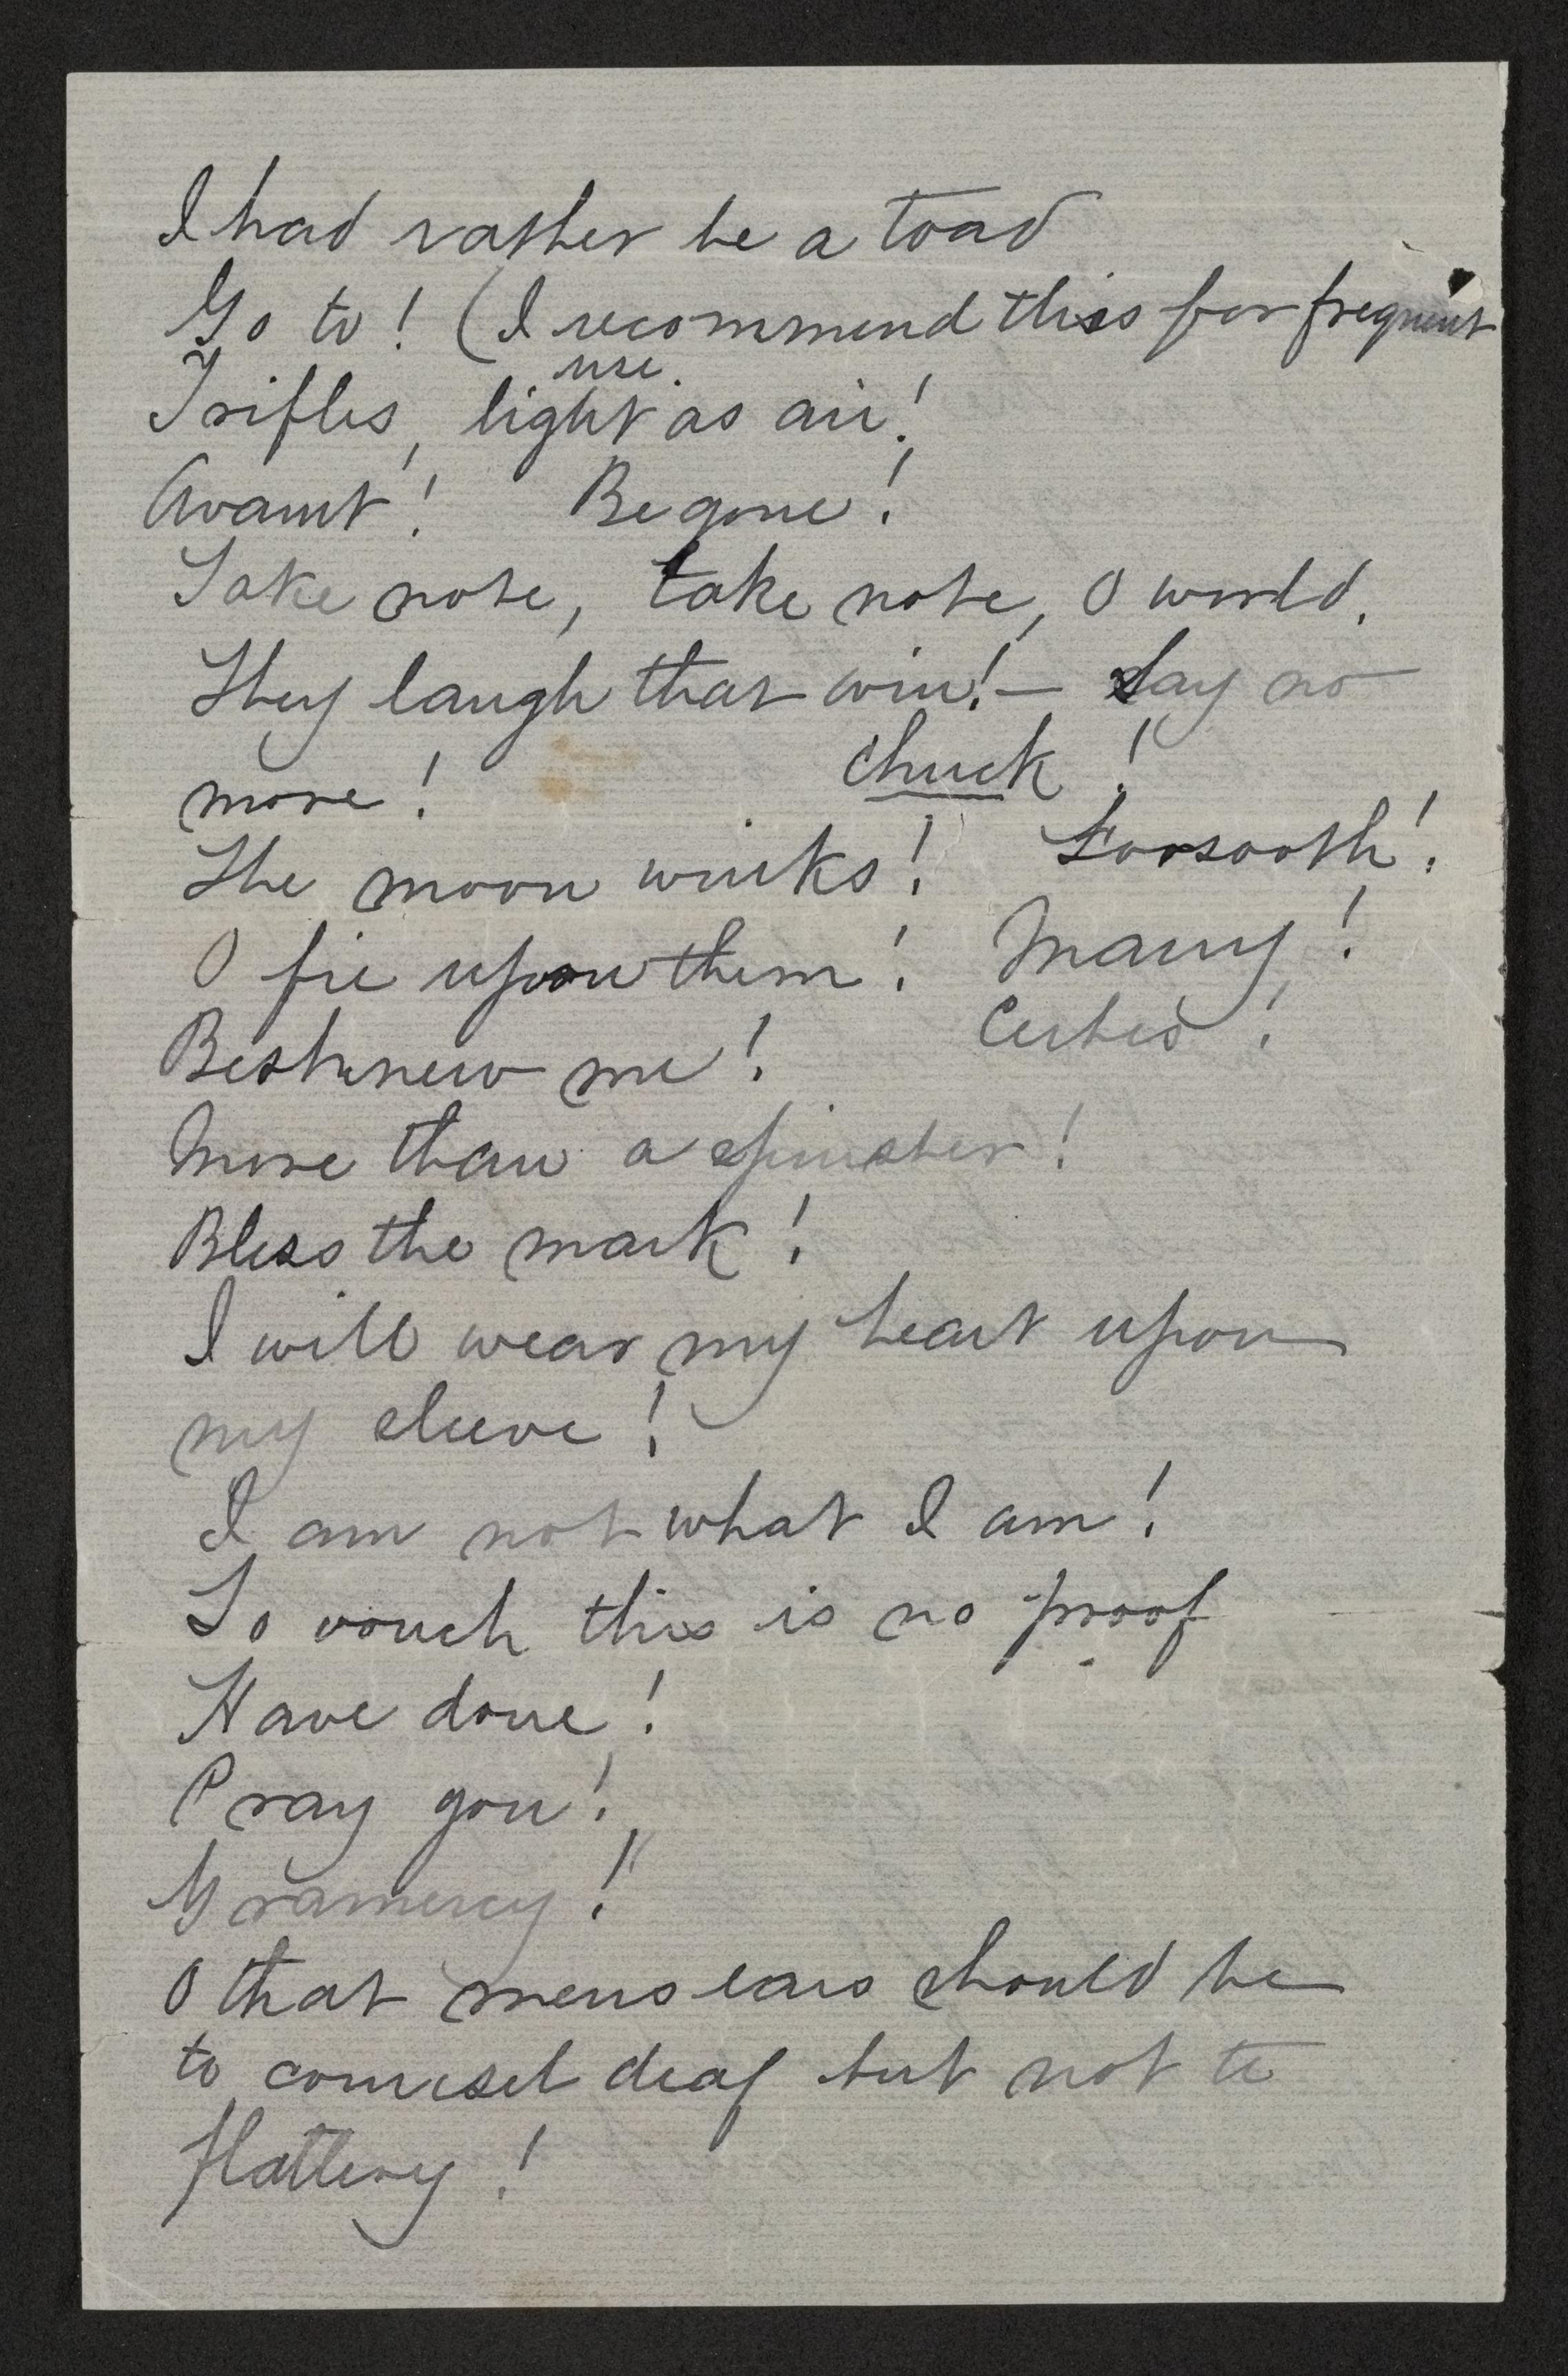 I had rather be a toad
Go to! (I recommend this for frequent
use.
Trifles, light as air!
Avaunt! Begone!
Take note, take note, O world.
They laugh that win! — Say no
more! Chuck!
The moon winks! Forsooth!
O fie upon them! Marry!
Beshrew me! Certes!
More than a spinster!
Bless the mark!
I will wear my heart upon
my sleeve!
I am not what I am!
To vouch this is no proof
Have done!
Pray you!
Gramercy!
O that mens ears should be
to counsel deaf but not to
flattery!